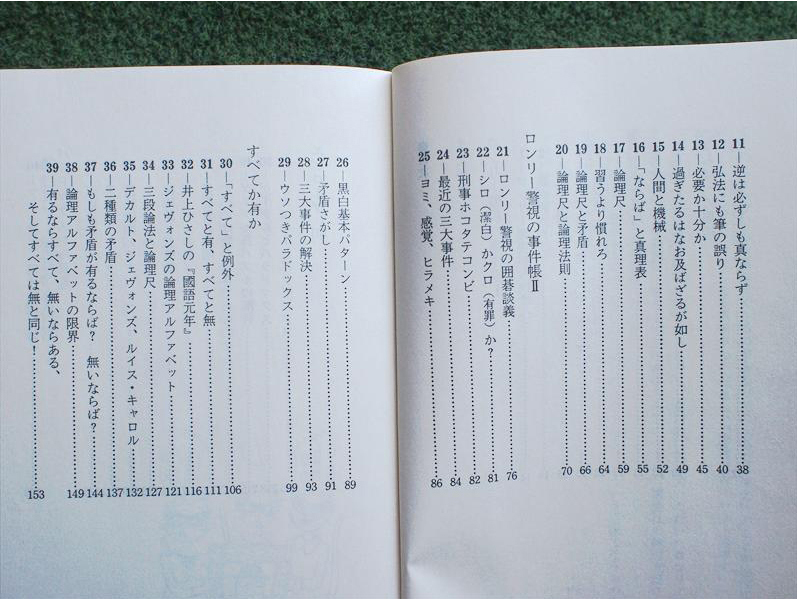 11—逆は必ずしも真ならず……38
12—弘法にも筆の誤り……40
13—必要か十分か……45
14—過ぎたるはなお及ばざるが如し……49
15—人間と機械……52
16—「ならば」と真理表……55
17—論理尺……59
18—習うより慣れろ……64
19—論理尺と矛盾……66
20—論理尺と論理法則……70
ロンリー警視の事件帳Ⅱ
21—ロンリー警視の囲碁談義……76
22—シロ（潔白）かクロ（有罪）か？……81
23—刑事ホコタテコンビ……82
24—最近の三大事件……84
25—ヨミ、感覚、ヒラメキ……86
26—黒白基本パターン……89
27—矛盾さがし……91
28—三大事件の解決……93
29—ウソつきパラドックス……99
すべてか有か
30—「すべて」と例外……106
31—すべてと有、すべてと無……111
32—井上ひさしの『國語元年』……116
33—ジェヴォンズの論理アルファベット……121
34—三段論法と論理尺……127
35—デカルト、ジェヴォンズ、ルイス・キャロル……132
36—二種類の矛盾……137
37—もしも矛盾が有るならば？　無いならば？……144
38—論理アルファベットの限界……149
39—有るならすべて、無いならある、
そしてすべては無と同じ！……153